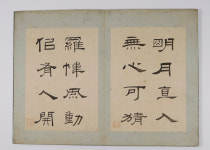 明月直入
無心可猜
羅帷風動
似有人開